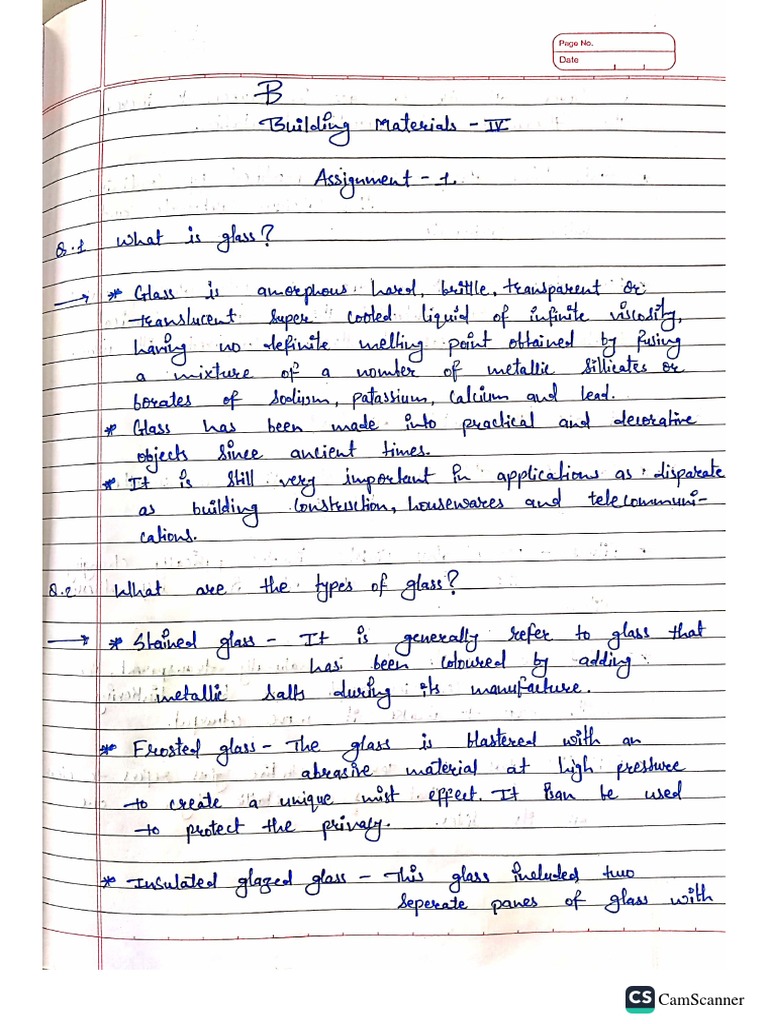 Page No.
Date
B
Building Materials - IV
Assignment - 1.
Q.1 What is glass?
→ * Glass is amorphous hard, brittle, transparent or
translucent super cooled liquid of infinite viscosity,
having no definite melting point obtained by fusing
a mixture of a nomber of metallic sillicates or
borates of Sodium, patassium, calcium and lead.
* Glass has been made into practical and decorative
objects since ancient times.
* It is still very important in applications as disparate
as building construction, housewares and telecommuni-
cations.
Q.2 What are the types of glass?
→ * Stained glass - It is generally refer to glass that
has been coloured by adding
metallic salts during its manufacture.
* Frosted glass - The glass is blastered with an
abrasive material at high pressure
to create a unique mist effect. It can be used
to protect the privacy.
* Insulated glazed glass - This glass included two
seperate panes of glass with
CS CamScanner